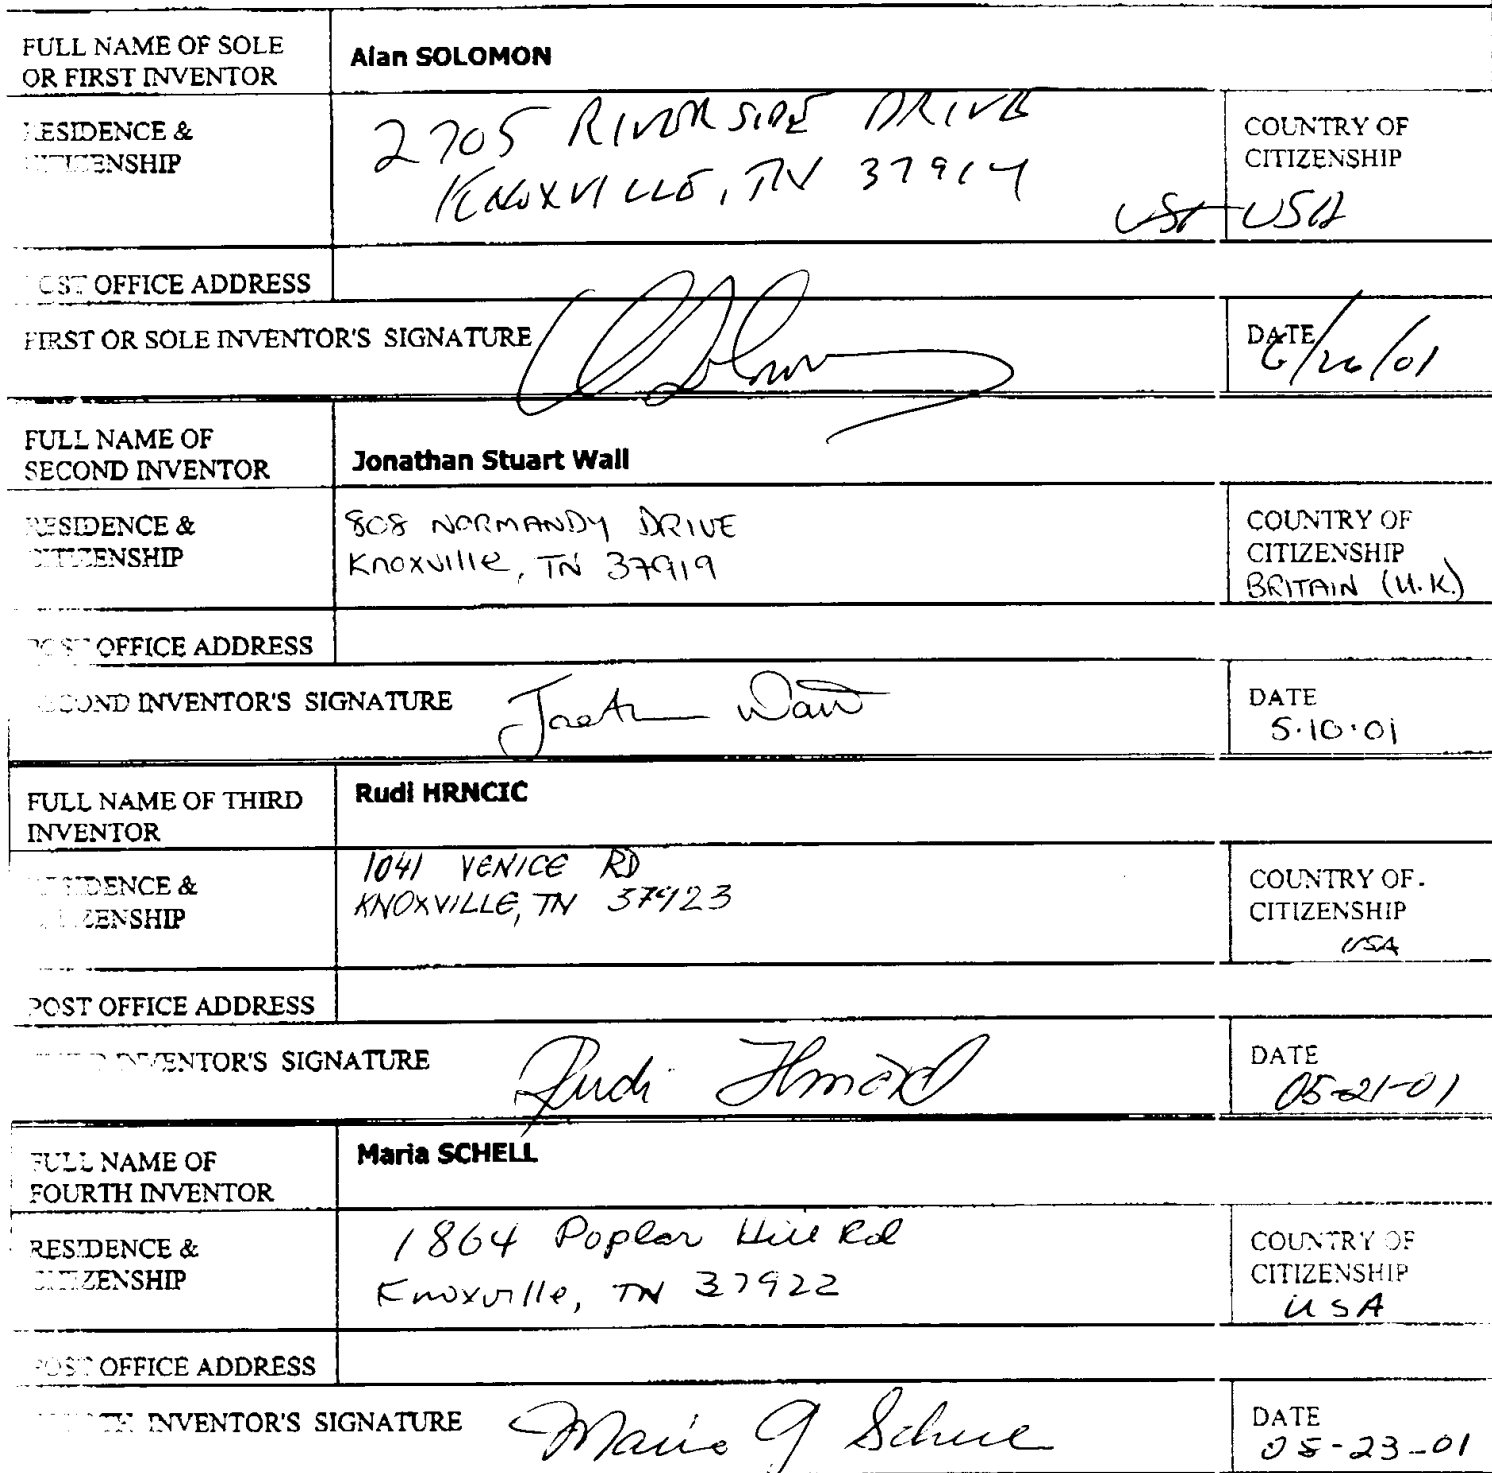 FULL NAME OF SOLE
OR FIRST INVENTOR
Alan SOLOMON
RESIDENCE &
CITIZENSHIP
2705 RIVERSIDE DRIVE
KNOXVILLE, TN 37914
COUNTRY OF
CITIZENSHIP
USA USA
POST OFFICE ADDRESS
FIRST OR SOLE INVENTOR'S SIGNATURE
DATE
6/26/01
FULL NAME OF
SECOND INVENTOR
Jonathan Stuart Wall
RESIDENCE &
CITIZENSHIP
808 NORMANDY DRIVE
Knoxville, TN 37919
COUNTRY OF
CITIZENSHIP
BRITAIN (U.K.)
POST OFFICE ADDRESS
SECOND INVENTOR'S SIGNATURE
DATE
5.10.01
FULL NAME OF THIRD
INVENTOR
Rudi HRNCIC
RESIDENCE &
CITIZENSHIP
1041 VENICE RD
KNOXVILLE, TN 37923
COUNTRY OF
CITIZENSHIP
USA
POST OFFICE ADDRESS
THIRD INVENTOR'S SIGNATURE
Rudi Hrncic
DATE
05-21-01
FULL NAME OF
FOURTH INVENTOR
Maria SCHELL
RESIDENCE &
CITIZENSHIP
1864 Poplar Hill Rd
Knoxville, TN 37922
COUNTRY OF
CITIZENSHIP
USA
POST OFFICE ADDRESS
INVENTOR'S SIGNATURE
Maria J Schell
DATE
05-23-01